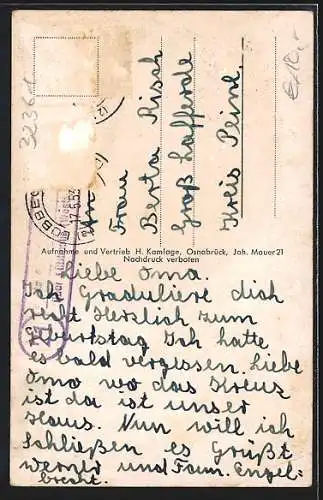 3236-1
€10,-
An
Frau
Berta Risch
Groß Lafferde
Kreis Peine
Aufnahme und Vertrieb H. Kamlage, Osnabrück, Joh. Mauer 21
Nachdruck verboten
Liebe Oma.
Ich Graduliere dich
recht Herzlich zum
Geburtstag Ich hatte
es bald vergessen. Liebe
Oma wo das Kreuz
ist da ist unser
Haus. Nun will ich
Schließen es Grüßt
werner und Fam. Engel-
brecht.